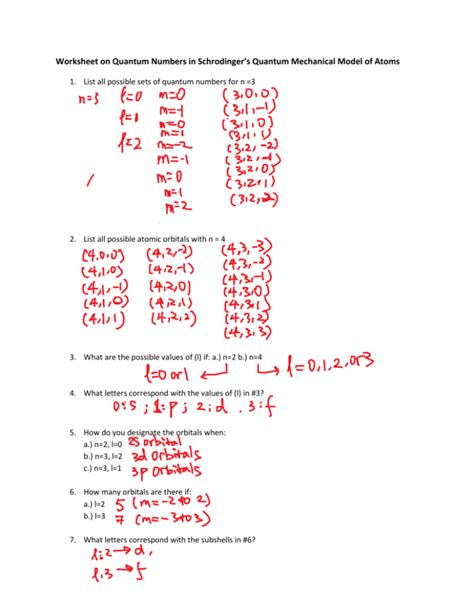 Worksheet on Quantum Numbers in Schrodinger's Quantum Mechanical Model of Atoms
1. List all possible sets of quantum numbers for n =3
n=3 l=0 m=0 (3,0,0)
l=1 m=-1 (3,1,-1)
m=0 (3,1,0)
m=1 (3,1,1)
l=2 m=-2 (3,2,-2)
m=-1 (3,2,-1)
m=0 (3,2,0)
m=1 (3,2,1)
m=2 (3,2,2)
2. List all possible atomic orbitals with n = 4
(4,0,0) (4,2,-2) (4,3,-3)
(4,1,0) (4,2,-1) (4,3,-2)
(4,1,-1) (4,2,0) (4,3,-1)
(4,1,0) (4,2,1) (4,3,0)
(4,1,1) (4,2,2) (4,3,1)
(4,3,2)
(4,3,3)
3. What are the possible values of (l) if: a.) n=2 b.) n=4
l=0 or 1 l=0,1,2, or 3
4. What letters correspond with the values of (l) in #3?
0:s ; 1:p ; 2:d . 3:f
5. How do you designate the orbitals when:
a.) n=2, l=0 2s orbital
b.) n=3, l=2 3d orbitals
c.) n=3, l=1 3p orbitals
6. How many orbitals are there if:
a.) l=2 5 (m=-2 to 2)
b.) l=3 7 (m=-3 to 3)
7. What letters correspond with the subshells in #6?
l:2→d,
l:3→f